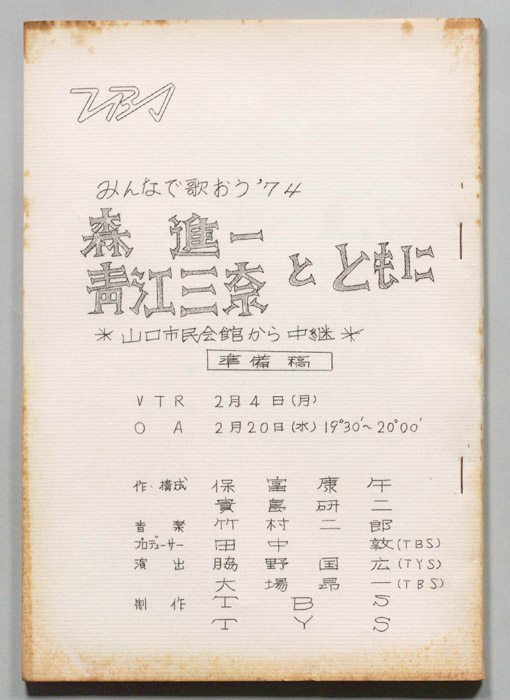 TBS
みんなで歌おう'74
森進一
青江三奈とともに
*山口市民会館から中継*
準備稿
VTR 2月4日(月)
OA 2月20日(水) 19°30'~20°00'
作・構成 保富康午
貴島研二
音楽 竹村二郎
プロデューサー 田中敦(TBS)
演出 脇野国広(TYS)
大場昂一(TBS)
制作 TBS
TYS